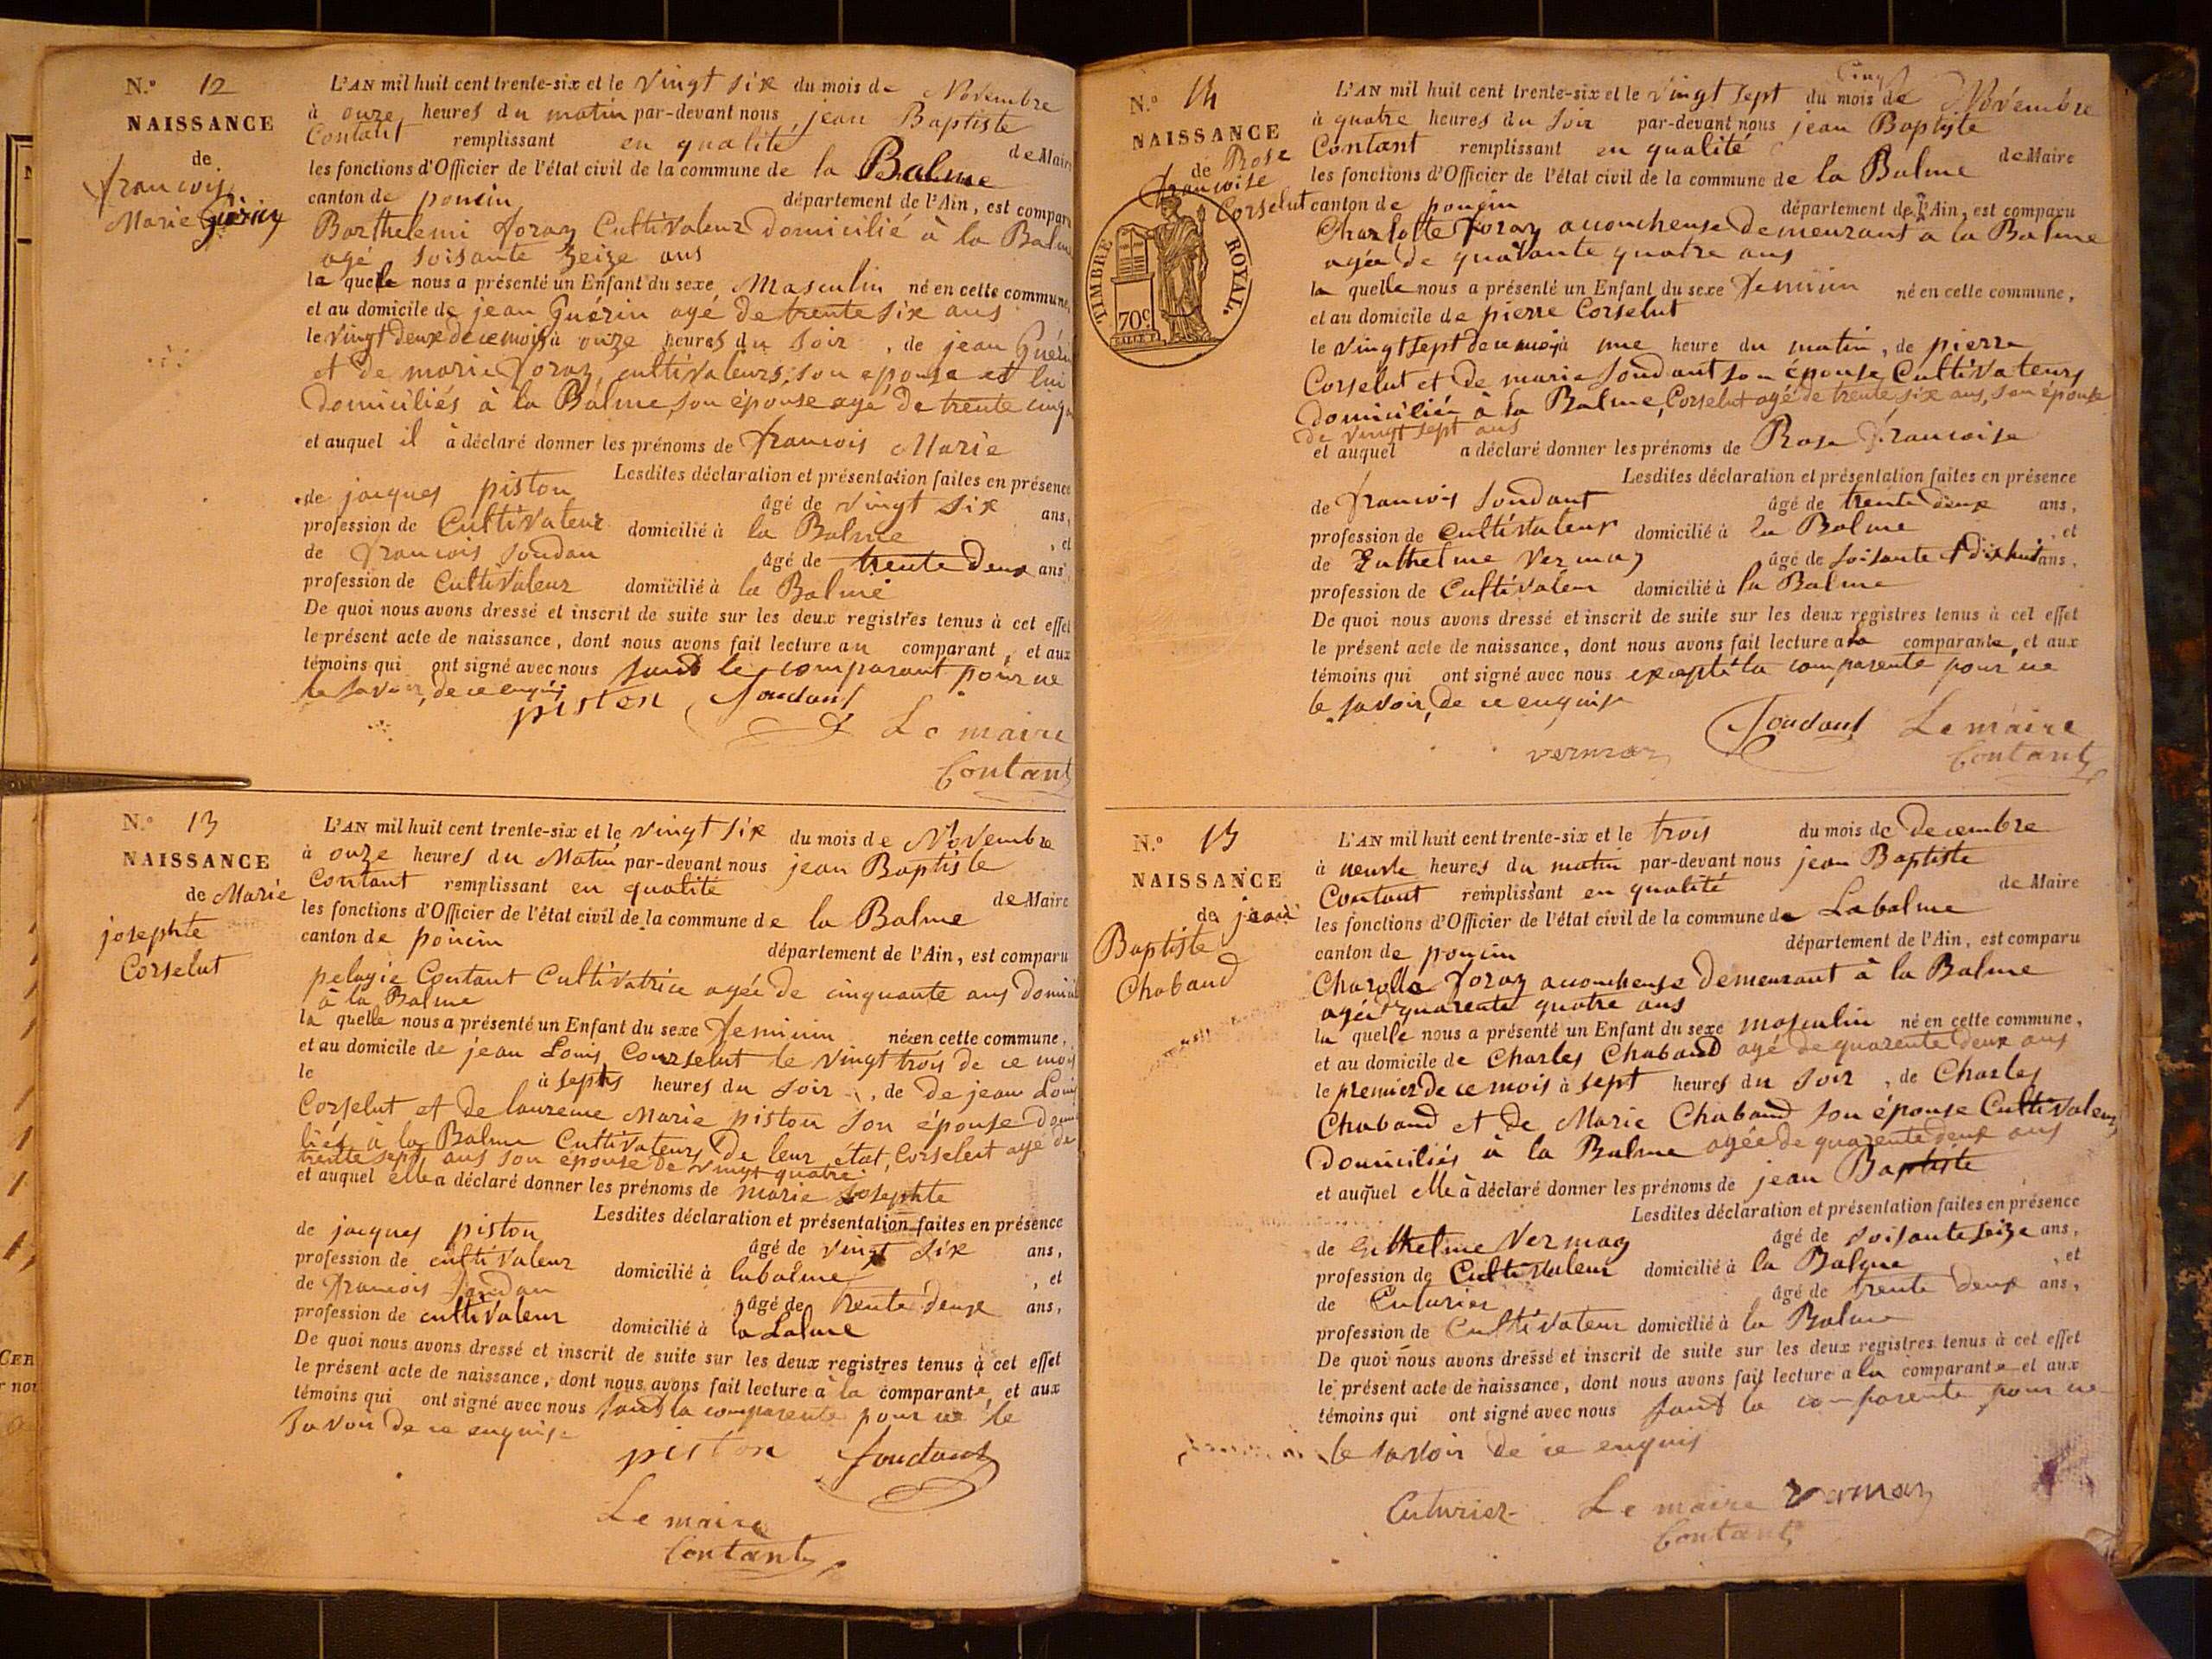 N.° 12
NAISSANCE
de
françois
Marie Guérin
L'AN mil huit cent trente-six et le vingt six du mois de Novembre
à onze heures du matin par-devant nous jean Baptiste
Contant remplissant en qualité de Maire
les fonctions d'Officier de l'état civil de la commune de la Balme
canton de poncin département de l'Ain, est comparu
Barthelemi Joray Cultivateur domicilié à la Balme
agé soisante seize ans
la quelle nous a présenté un Enfant du sexe Masculin né en cette commune,
et au domicile de jean Guérin agé de trente six ans
le vingt deux de ce mois à onze heures du soir, de jean Guérin
et de marie Joray, cultivateurs, son epouse et lui
Domiciliés à la Balme, son épouse agé de trente cinq
et auquel il à déclaré donner les prénoms de françois Marie
Lesdites déclaration et présentation faites en présence
de jacques piston âgé de vingt six ans,
profession de Cultivateur domicilié à la Balme, et
de françois soudan âgé de trente deux ans,
profession de Cultivateur domicilié à la Balme
De quoi nous avons dressé et inscrit de suite sur les deux registres tenus à cet effet
le présent acte de naissance, dont nous avons fait lecture au comparant, et aux
témoins qui ont signé avec nous sauf le comparant pour ne
le savoir, de ce enquis
piston Soudant
Le maire
Contant
N.° 13
NAISSANCE
de Marie
josephte
Corselut
L'AN mil huit cent trente-six et le vingt six du mois de Novembre
à onze heures du Matin par-devant nous jean Baptiste
Contant remplissant en qualité de Maire
les fonctions d'Officier de l'état civil de la commune de la Balme
canton de poncin département de l'Ain, est comparu
pelagie Contant Cultivatrice agée de cinquante ans domicil
à la Balme
la quelle nous a présenté un Enfant du sexe feminin née en cette commune,
et au domicile de jean Louis Courselut le vingt trois de ce mois
le à sept heures du soir, de de jean Louis
Corselut et de laurence Marie piston son épouse domi
liés à la Balme Cultivateurs De leur état, Corselut agé de
trente sept ans son épouse de vingt quatre
et auquel elle a déclaré donner les prénoms de marie josephte
Lesdites déclaration et présentation faites en présence
de jacques piston âgé de vingt six ans,
profession de cultivateur domicilié à labalme, et
de françois soudan âgé de trente deux ans,
profession de cultivateur domicilié à la balme
De quoi nous avons dressé et inscrit de suite sur les deux registres tenus à cet effet
le présent acte de naissance, dont nous avons fait lecture à la comparante, et aux
témoins qui ont signé avec nous sauf la comparente pour ne le
savoir de ce enquise
piston soudant
Le maire
Contant
N.° 14
NAISSANCE
de Rose
françoise
Corselut
TIMBRE ROYAL
70c
L'AN mil huit cent trente-six et le vingt sept du mois de Novembre
à quatre heures du soir par-devant nous jean Baptiste
Contant remplissant en qualité de Maire
les fonctions d'Officier de l'état civil de la commune de la Balme
canton de poncin département de l'Ain, est comparu
Charlotte Joray accoucheuse Demeurant a la Balme
agée de quarante quatre ans
la quelle nous a présenté un Enfant du sexe feminin né en cette commune,
et au domicile de pierre Corselut
le vingt sept de ce mois à une heure du matin, de pierre
Corselut et de marie soudant son épouse Cultivateurs
domiciliés à la Balme, Corselut agé de trente six ans, son épouse
de vingt sept ans
et auquel a déclaré donner les prénoms de Rose françoise
Lesdites déclaration et présentation faites en présence
de françois soudant âgé de trente deux ans,
profession de cultivateur domicilié à la Balme, et
de Enthelme Vermay âgé de soisante dix huit ans,
profession de Cultivateur domicilié à la Balme
De quoi nous avons dressé et inscrit de suite sur les deux registres tenus à cet effet
le présent acte de naissance, dont nous avons fait lecture a la comparante, et aux
témoins qui ont signé avec nous excepté la comparente pour ne
le savoir, de ce enquise
vermay Soudant Le maire
Contant
N.° 15
NAISSANCE
de jean
Baptiste
Chaband
L'AN mil huit cent trente-six et le trois du mois de decembre
à neuve heures du matin par-devant nous jean Baptiste
Contant remplissant en qualité de Maire
les fonctions d'Officier de l'état civil de la commune de Labalme
canton de poncin département de l'Ain, est comparu
Joray accoucheuse Demeurant à la Balme
agée quarente quatre ans
la quelle nous a présenté un Enfant du sexe masculin né en cette commune,
et au domicile de Charles Chaband agé de quarente deux ans
le premier de ce mois à sept heures du soir, de Charles
Chaband et de Marie Chaband son épouse Cultivateurs
domiciliés à la Balme agée de quarente deux ans
et auquel elle à déclaré donner les prénoms de jean Baptiste
Lesdites déclaration et présentation faites en présence
de Enthelme Vermay âgé de soisante seize ans,
profession de Cultivateur domicilié à la Balme, et
de Cuturier âgé de trente deux ans,
profession de Cultivateur domicilié à la Balme
De quoi nous avons dressé et inscrit de suite sur les deux registres tenus à cet effet
le présent acte de naissance, dont nous avons fait lecture a la comparante et aux
témoins qui ont signé avec nous sauf la comparente pour ne
le savoir de ce enquis
Cuturier Le maire vermay
Contant